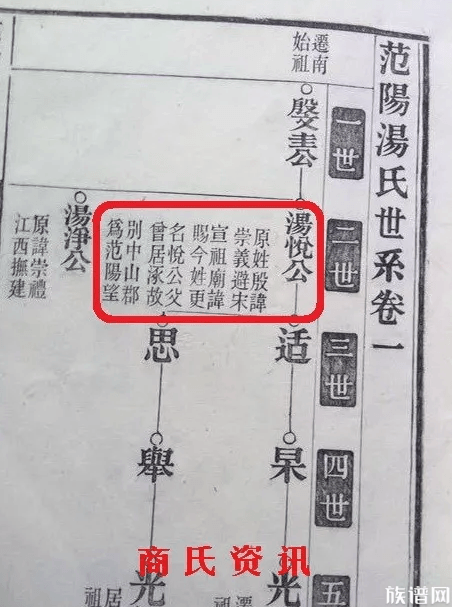 范陽湯氏世系卷一
一世
二世
三世
四世
五
遷南
始祖
殷文圭公
湯悅公
原姓殷諱
崇義避宋
宣祖廟諱
賜今姓更
名悅公父
曾居涿故
別中山郡
為范陽望
适
杲
光
思
舉
光
湯淨公
原諱崇禮
江西撫建
居
祖
商氏资讯
族谱网